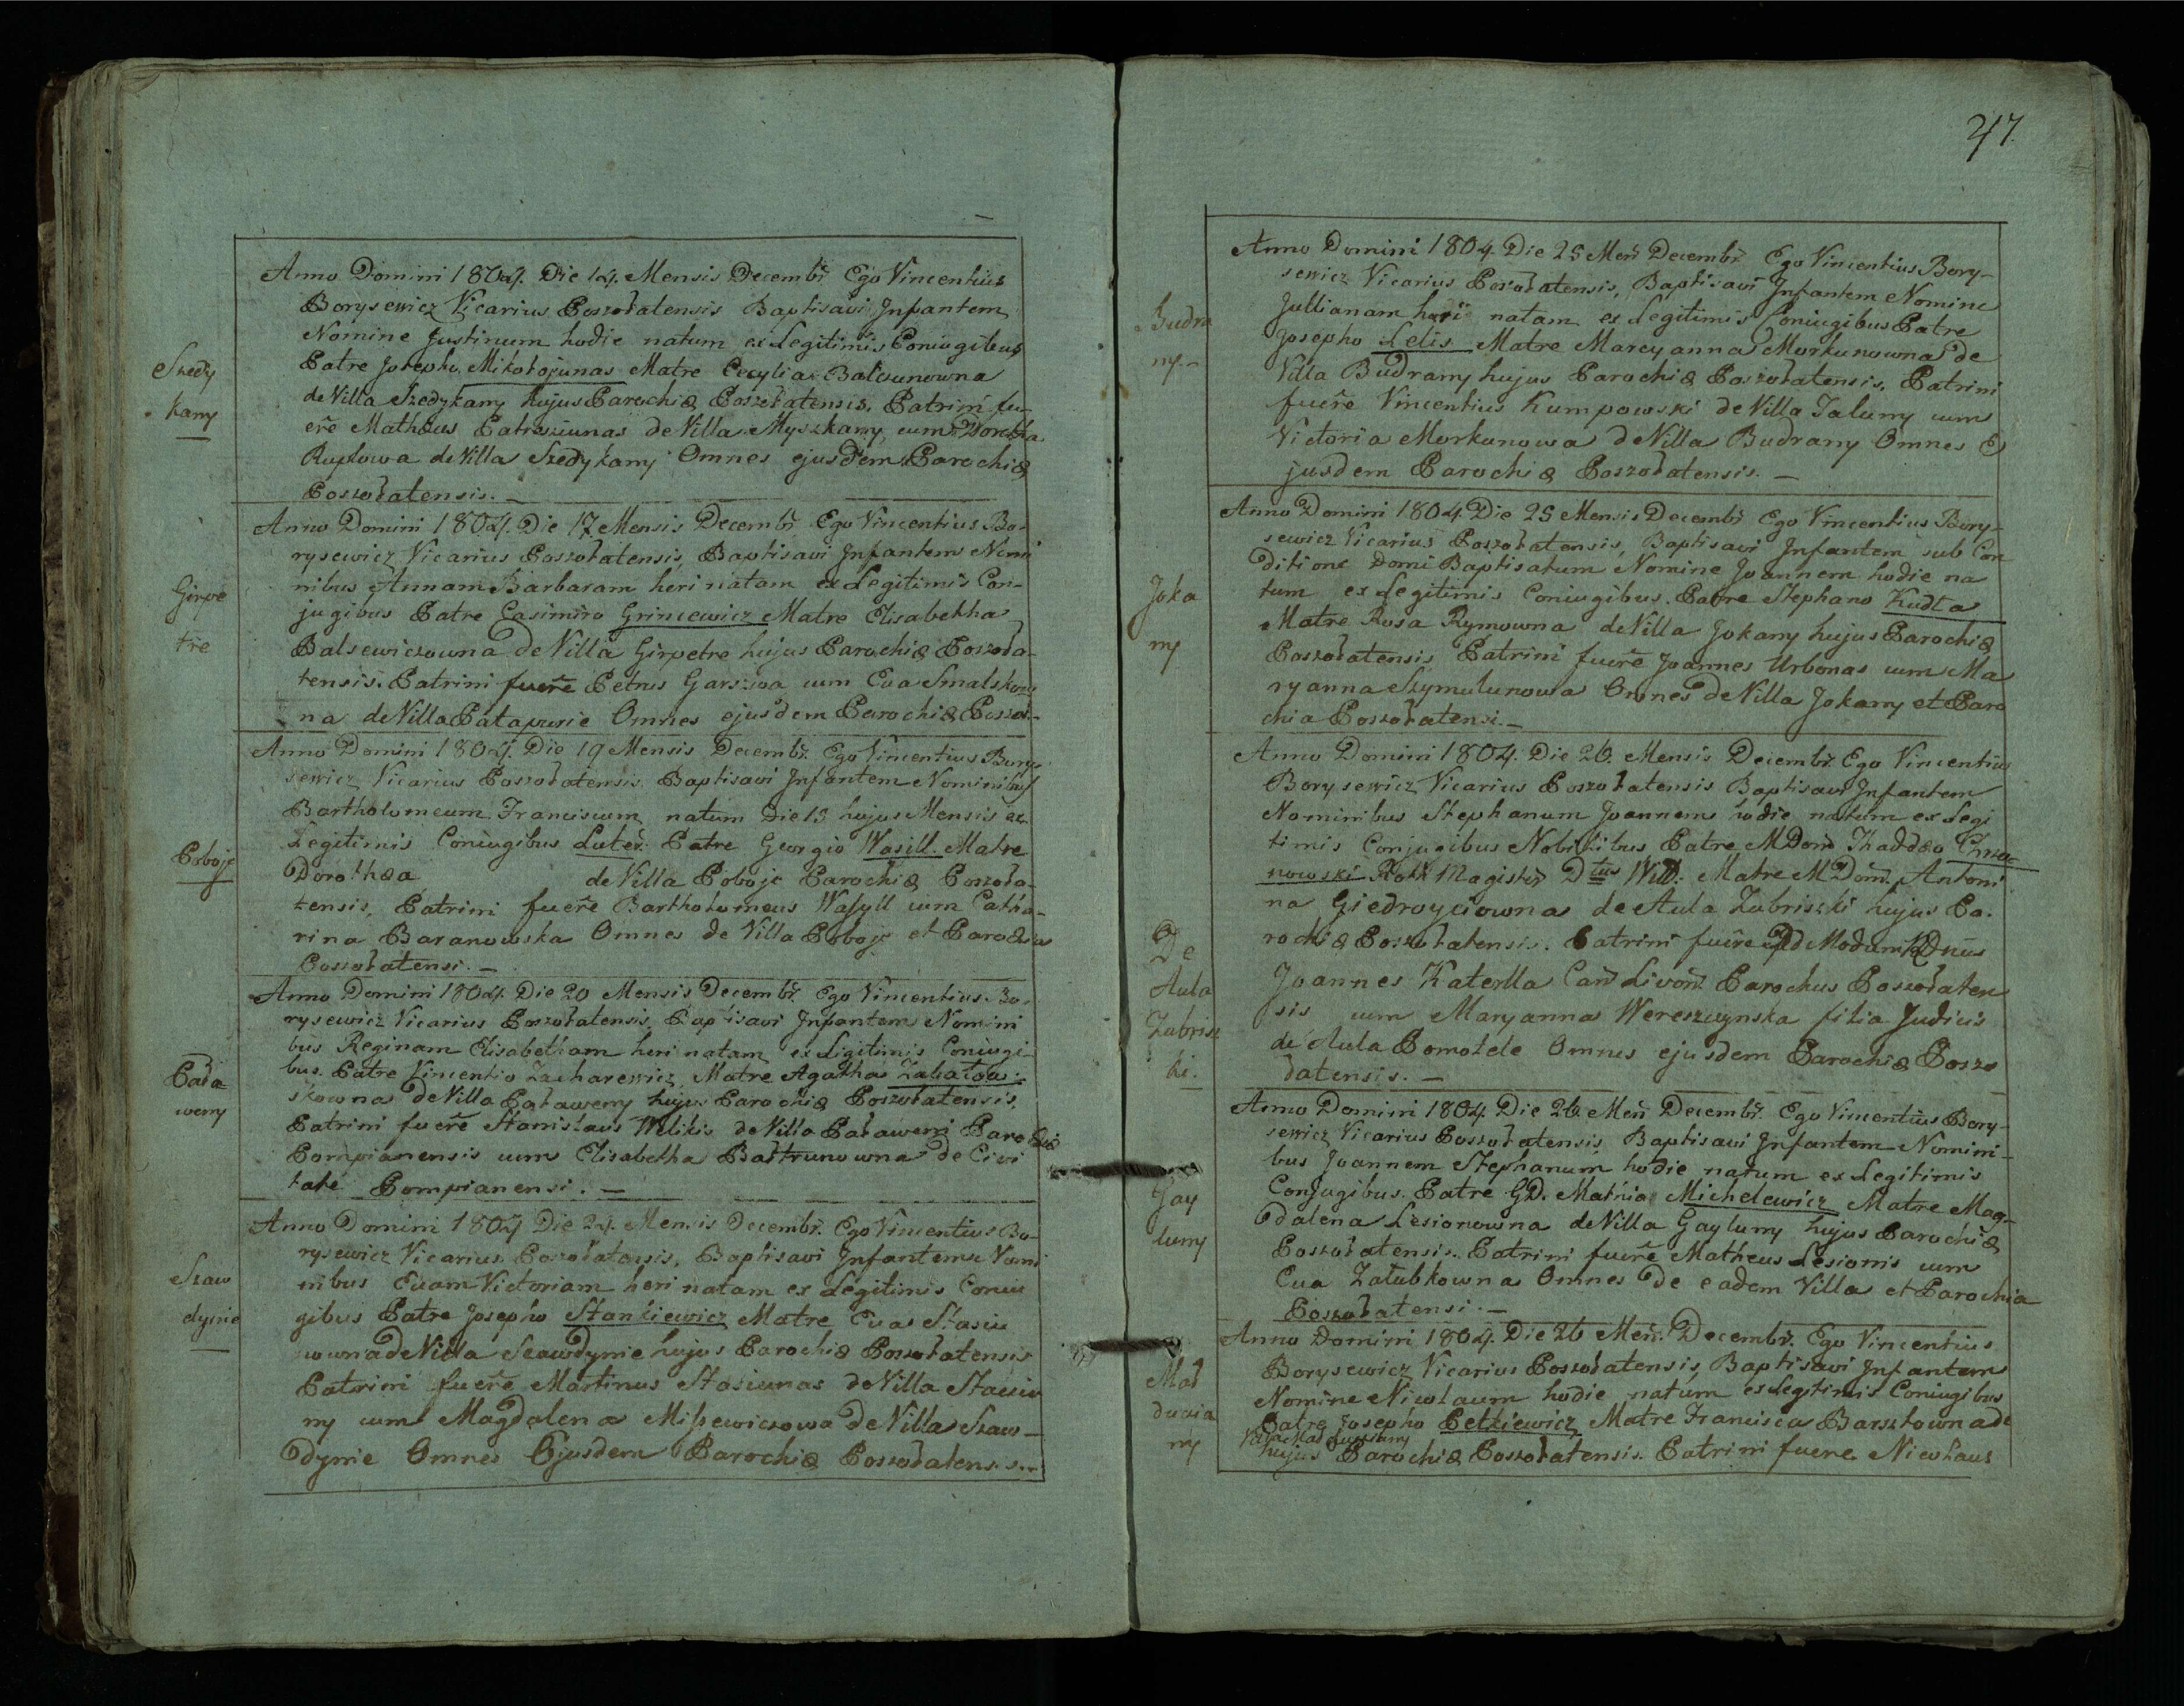 Szedy
kany
Anno Domini 1804. Die 14. Mensis Decembr̃ Ego Vincentius
Borysewicz Vicarius Poszołatensis Baptisavi Jnfantem
Nomine Justinum hodie natum ex Legitimis Coniugibus
Patre Josepho Mikołojunas Matre Cecylia Balcsunowna
de Villa Szedykany hujus Parochiæ Poszołatensis. Patrini fu-
erẽ Mathæus Patraszunas de Villa Myszkany cum Dorothea
Ruplowa de Villa Szedykany Omnes ejusdem Parochiæ
Poszołatensis. —
Girpe
tre
Anno Domini 1804. Die 17 Mensis Decembr̃ Ego Vincentius Bo-
rysewicz Vicarius Poszołatensis, Baptisavi Jnfantem Nomi
nibus Annam Barbaram heri natam ex Legitimis Con-
jugibus Patre Casimiro Grincewicz Matre Elisabetha
Balsewiczowna de Villa Girpetre hujus Parochiæ Poszoła-
tensis. Patrini fuerẽ Petrus Garszwa cum Eva Smalskow
na de Villa Patapurie Omnes ejusdem Parochiæ Poszoł-
Poboje
Anno Domini 1804. Die 19 Mensis Decembr̃. Ego Vincentius Bory-
sewicz Vicarius Poszołatensis Baptisavi Jnfantem Nominibus
Bartholomeum Franciscum natum Die 13 hujus Mensis ex
Legitimis Coniugibus Luter̃. Patre Georgio Wasill. Matre
Dorothæa de Villa Poboje Parochiæ Poszoła-
tensis, Patrini fuerẽ Bartholomeus Waſyll cum Catha-
rina Baranowska Omnes de Villa Poboje et Parochia
Poszołatensi. —
Pała
weny
Anno Domini 1804. Die 20 Mensis Decembr̃. Ego Vincentius Bo-
rysewicz Vicarius Poszołatensis, Baptisavi Jnfantem Nomini
bus Reginam Elisabetham heri natam ex Ligitimis Coniugi-
bus. Patre Vincentio Zacharewicz, Matre Agatha
skowna de Villa Paławeny hujus Parochiæ Poszołatensis,
Patrini fuerẽ Stanislaus Wilikis de Villa Paławeni Parochiæ
Pompianensis cum Elisabetha Bałtrunowna de Civi
tate Pompianensi. —
Szaw
dynie
Anno Domini 1804 Die 24. Mensis Decembr̃. Ego Vincentius Bo-
rysewicz Vicarius Poszołatensis, Baptisavi Jnfantem Nomi
nibus Evam Victoriam heri natam ex Legitimis Coniu
gibus Patre Josepho Stankiewicz Matre Eva Stasiu
nowna de Villa Szawdynie hujus Parochiæ Poszołatensis
Patrini fuerẽ Martinus Stasiunas de Villa Staciu
ny cum Magdalena Miſzewiczowa de Villa Szaw-
dynie Omnes Ejusdem Parochiæ Poszołatensis.-
47.
Budra
ny.-
Anno Domini 1804 Die 25 Meñ Decembr̃ Ego Vincentius Bory-
sewicz Vicarius Poszołatensis, Baptisavi Jnfantem Nomine
Jullianam heri natam ex Legitimis Coniugibus Patre
Josepho Lelis Matre Marcyanna Morkunowna de
Villa Budrany hujus Parochiæ Poszołatensis. Patrini
fuerẽ Vincentius Kumpowski de Villa Jaluny cum
Victoria Morkunowa de Villa Budrany Omnes E
jusdem Parochiæ Poszołatensis. —
Joka
ny
Anno Domini 1804 Die 25 Mensis Decembr̃ Ego Vincentius Bory-
sewicz Vicarius Poszołatensis, Baptisavi Jnfantem sub Con
ditione Domi Baptisatum Nomine Joannem hodie na
tum ex Legitimis Coniugibus. Patre Stephano Kudła
Matre Rosa Rymowna de Villa Jokany hujus Parochiæ
Poszołatensis Patrini fuerẽ Joannes Urbonas cum Ma
ryanna Szymulunowa Omnes de Villa Jokany et Paro
chia Poszołatensi. —
De
Aula
Zubrisz
ki.
Anno Domini 1804. Die 26. Mensis Decembr̃. Ego Vincentius
Borysewicz Vicarius Poszołatensis Baptisavi Jnfantem
Nominibus Stephanum Joannem hodie natum ex Legi
timis Conjugibus Nobilibus Patre MDom̃ Thaddæo
nowski Rotæ Magistro Dtus Wilł. Matre MDom̃. Antoni
na Giedroyciowna de Aula Zubriszki hujus Pa-
rochiæ Poszołatensis. Patrini fuerẽ Ad Modum R Dnus
Joannes Katerlla Can̄ Livoñ Parochus Poszołaten
sis cum Maryanna Wereszczynska filia Judicis
de Aula Pomotele Omnes ejusdem Parochiæ Poszo
łatensis. —
Gay
luny
Anno Domini 1804 Die 26 Meñ Decembr̃. Ego Vincentius Bory-
sewicz Vicarius Poszołatensis, Baptisavi Jnfantem Nomini-
bus Joannem Stephanum hodie natum ex Legitimis
Conjugibus. Patre GD. Mathia Michelewicz Matre Mag-
dalena Lesionowna de Villa Gayluny hujus Parochiæ
Poszołatensis. Patrini fuerẽ Matheus Lesionis cum
Eva Załubkowna Omnes de eadem Villa et Parochia
Poszołatensi. —
Mał
duncia
ny
Anno Domini 1804. Die 26 Meñ. Decembr̃. Ego Vincentius
Borysewicz Vicarius Poszołatensis, Baptisavi Jnfantem
Nomine Nicolaum hodie natum ex Legitimis Coniugibus
Patre Josepho Petkiewicz Matre Francisca Barsztowna de
Villa
hujus Parochiæ Poszołatensis. Patrini fuere Nicolaus